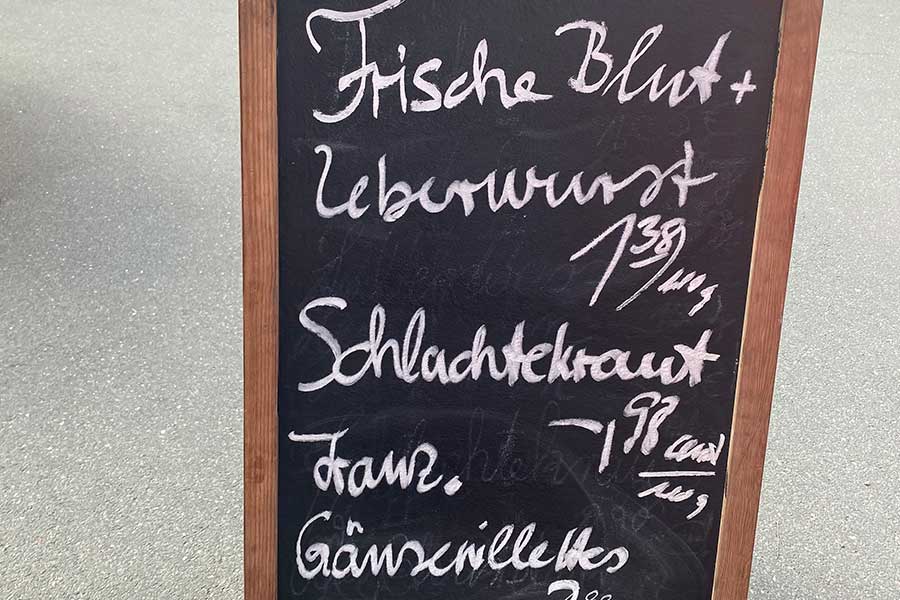 Frische Blut +
Leberwurst
1,38/100g
Schlachtekraut
-,98
100g
Franz.
Gänserillettes